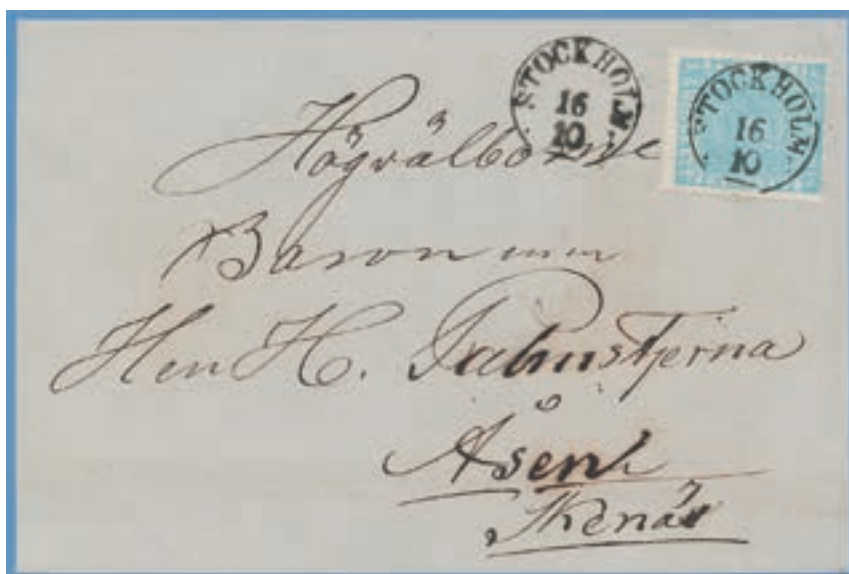 STOCKHOLM
16
10
STOCKHOLM
16
10
Högvälborne
Baronen m m
Herr H. Palmstjerna
Åsen
Skenäs